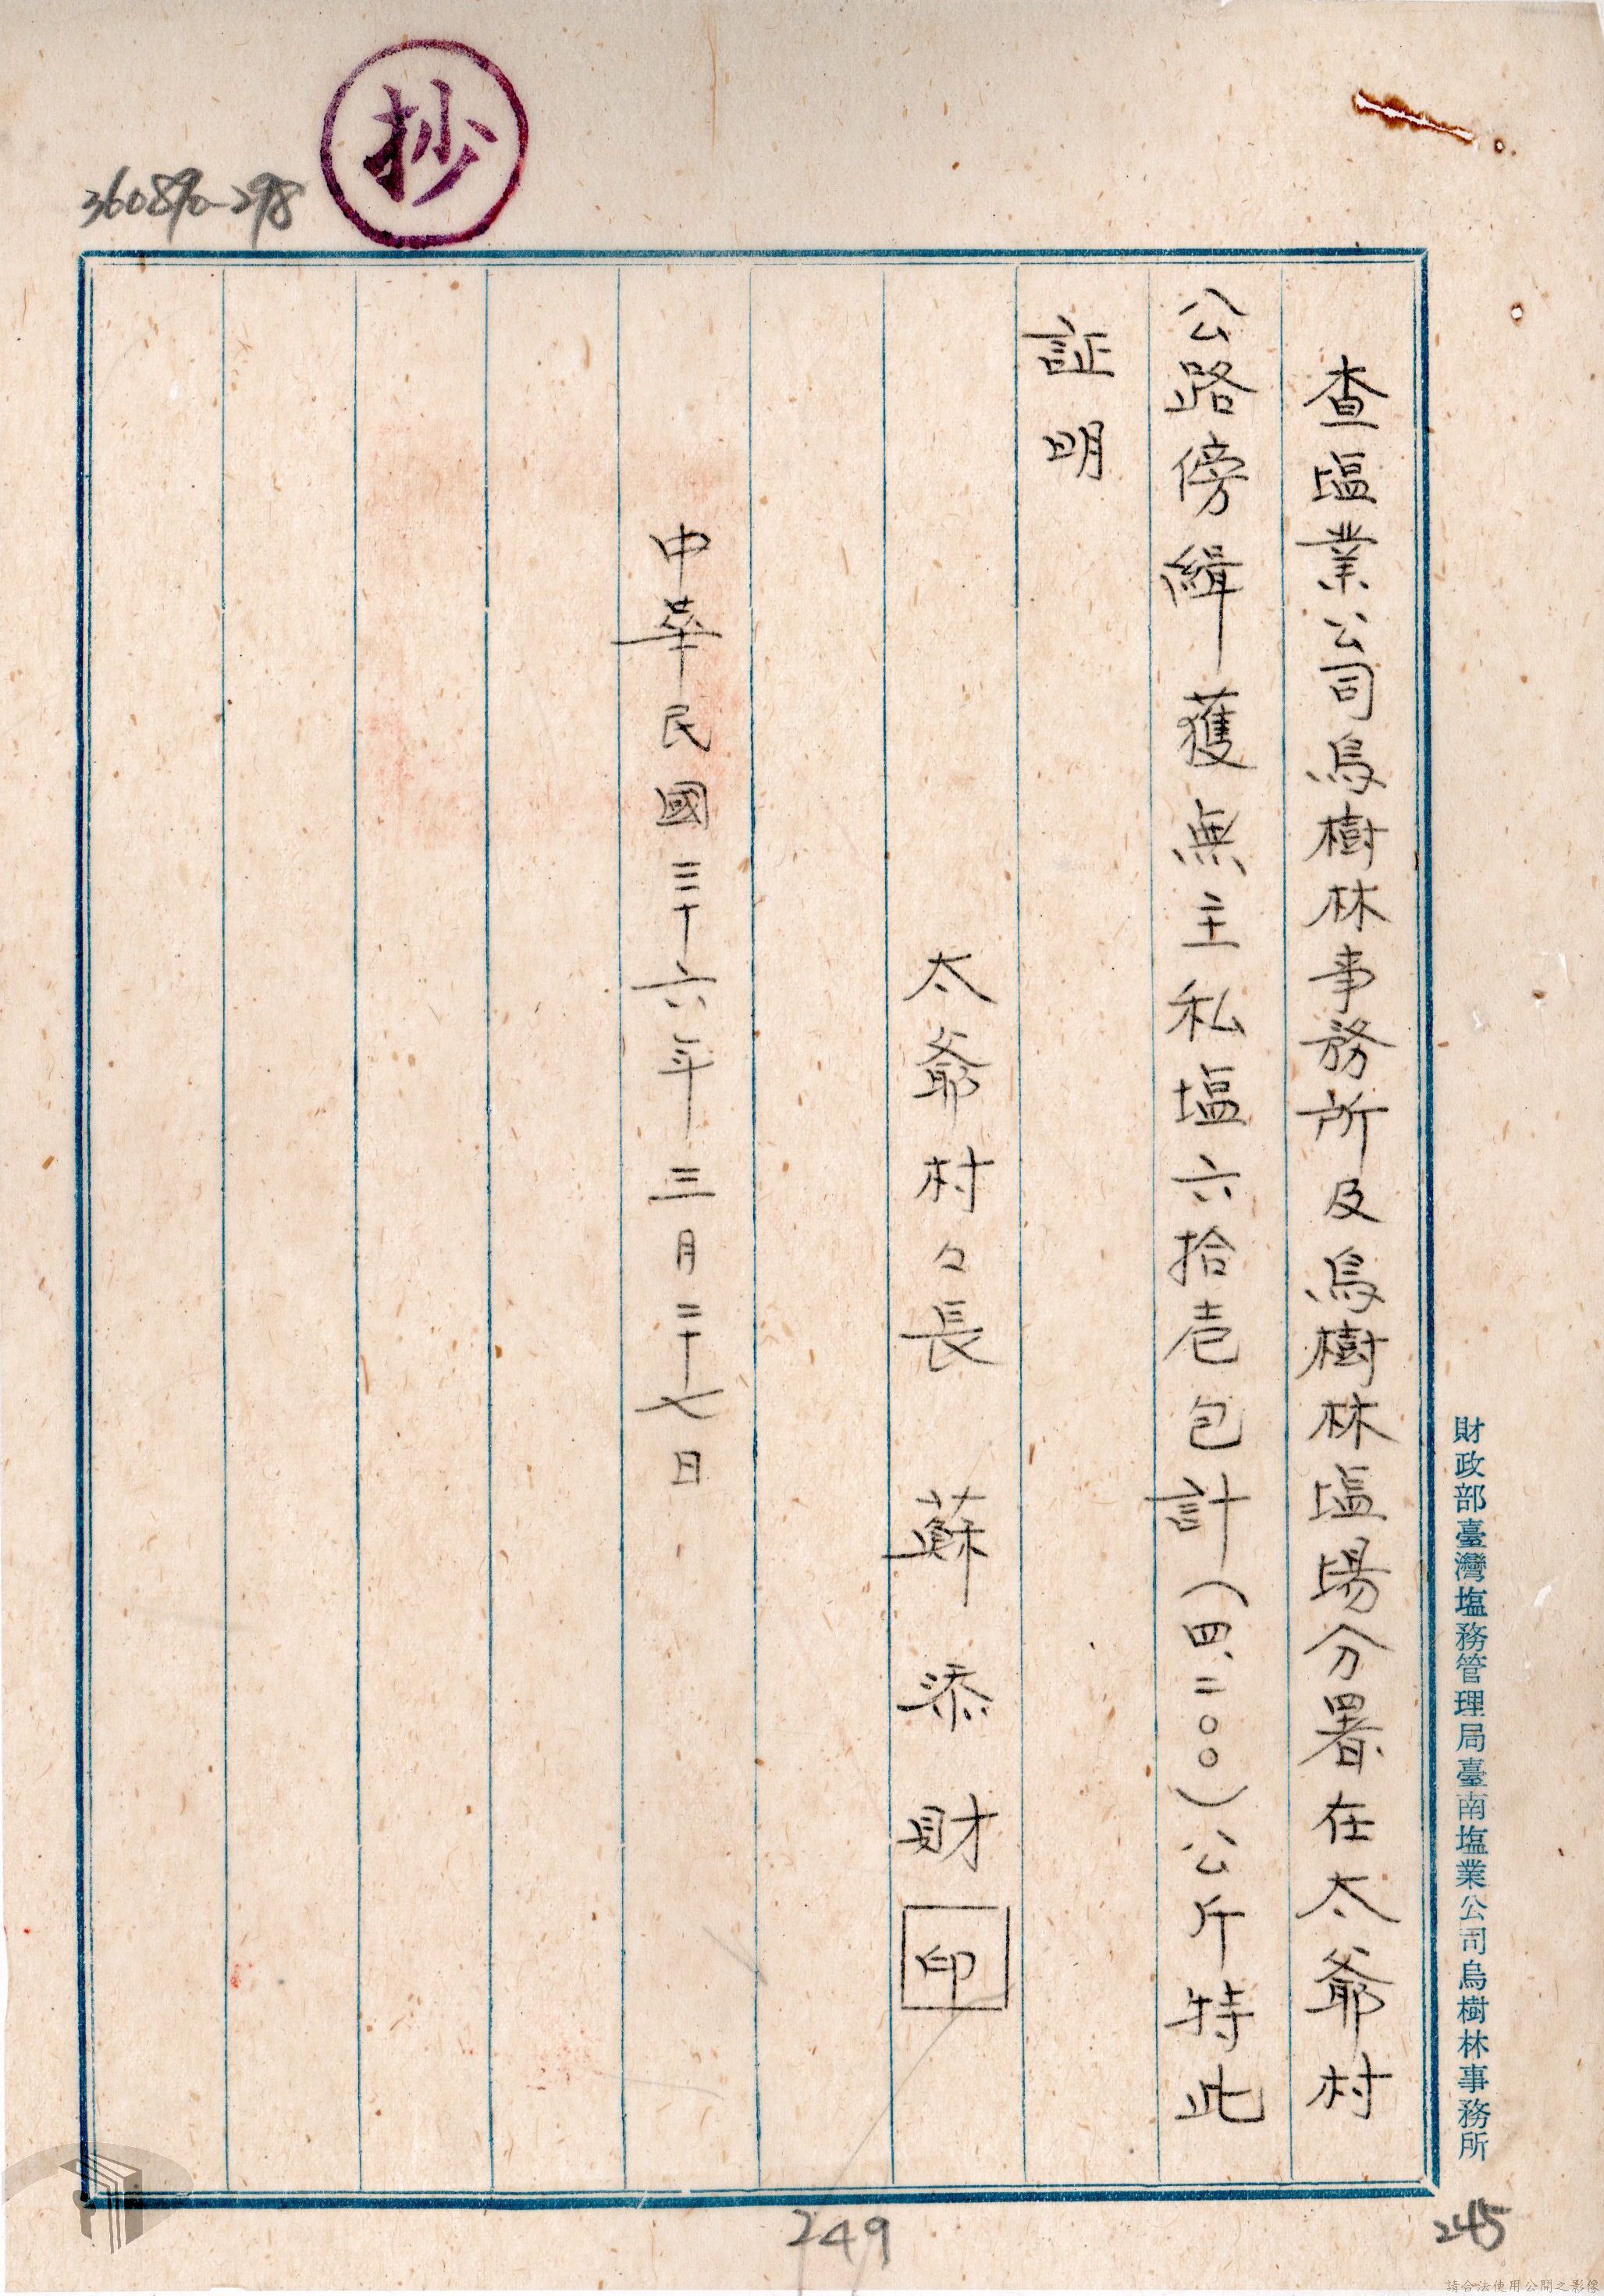 抄
360890-298
查塩業公司烏樹林事務所及烏樹林塩場分署在太爺村
公路傍緝獲無主私塩六拾壱包計(四、二〇〇)公斤特此
証明
太爺村々長 蘇添財 印
中華民國三十六年三月二十七日
財政部臺灣塩務管理局臺南塩業公司烏樹林事務所
249
245
請合法使用公開之影像